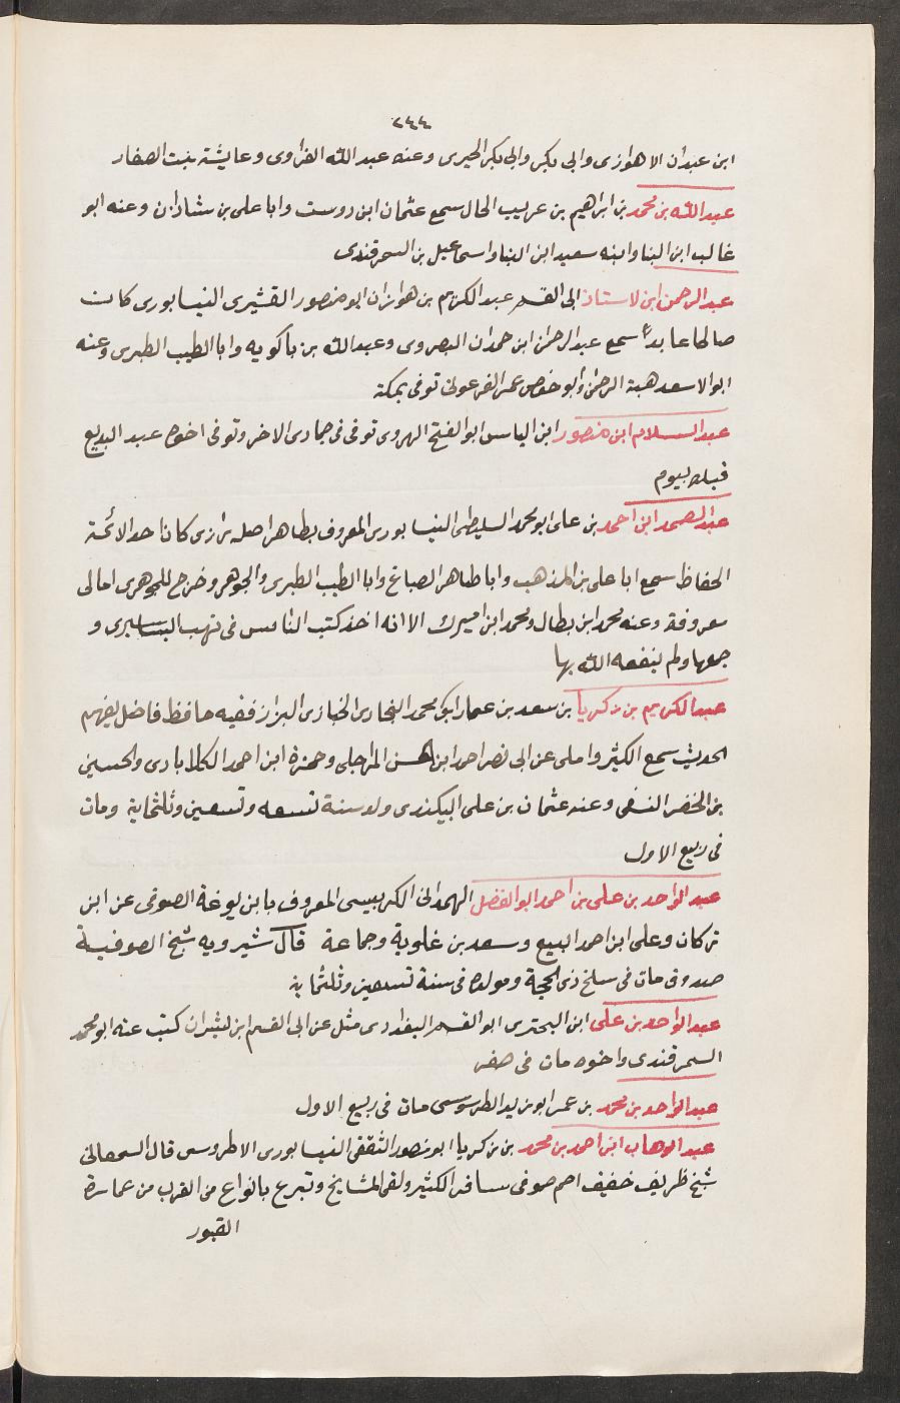 ٢٤٤
ابن عبدان الاهوازى وابى بكر وابى بكر الحيرى وعنه عبد الله الفراوى وعايشة بنت الصفار
عبد الله بن محمد بن ابراهيم بن عريب الحال سمع عثمان ابن دوست وابا على بن شاذان وعنه ابو
غالب ابن البنا وابنه سعيد ابن البنا واسماعيل بن السمرقندى
عبد الرحمن ابن لاستاذ ابى القسم عبد الكريم بن هوازان ابو منصور القشيرى النيسابورى كان
صالحا عابدا سمع عبد الرحمن ابن حمدان البصروى وعبد الله بن باكويه وابا الطيب الطبرى وعنه
ابوالاسعد هبة الرحمن وابو حفص عمر الفرغولى توفى بمكة
عبد السلام ابن منصور ابن الياس ابو الفتح الهروى توفى فى جمادى الاخر وتوفى اخوه عبد البديع
قبله بيوم
عبد الصمد ابن احمد بن على ابو محمد السليطى النيسابورى المعروف بطاهر اصله رازى كان احد الائمة
الحفاظ سمع ابا على بن المذهب وابا طاهر الصباغ وابا الطيب الطبرى والجوهر وخرج للجوهرى امالى
معروفة وعنه محمد ابن بطال ومحمد ابن اميرك الا انه اخذ كتب الناس فى نهب البساسيرى و
جمعها ولم ينفعه الله بها
عبد الكريم بن زكريا بن سعد بن عمار ابو محمد البخارى الخبازى البزاز فقيه حافظ فاضل يفهم
الحديث سمع الكثير واملى عن ابى نصر احمد ابن الحسن المراجلى وحمزة ابن احمد الكلاباذى والحسين
بن الخضر النسفى وعنه عثمان بن على البيكندى ولد سنة تسعه وتسعين وثلثماية ومات
فى ربيع الاول
عبد الواحد بن على بن احمد ابو الفضل الهمدانى الكرابيسى المعروف بابن يوغة الصوفى عن ابن
تركان وعلى ابن احمد البيع وسعد بن علوية وجماعة قال شيرويه شيخ الصوفية
صدوق مات فى سلخ ذى الحجة ومولده فى سنة تسعين وثلثماية
عبد الواحد بن على ابن البحترى ابو القسم البغدادى مثل عن ابى القسم ابن بشران كتب عنه ابو محمد
السمرقندى واخوه مات فى صفر
عبد الواحد بن محمد بن عمر ابو زيد الطرسوسى مات فى ربيع الاول
عبد الوهاب ابن احمد بن محمد بن زكريا ابو منصور الثقفى النيسابورى الاطروس قال السمعانى
شيخ ظريف خفيف اصم صوفى سافر الكثير ولقى المشايخ وتبرع بانواع من القرب من عمارة
القبور